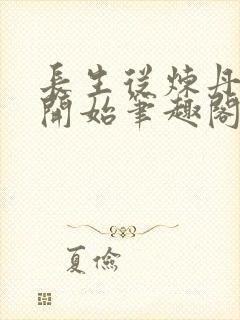 長生從煉丹
開始筆趣閣
夏儉